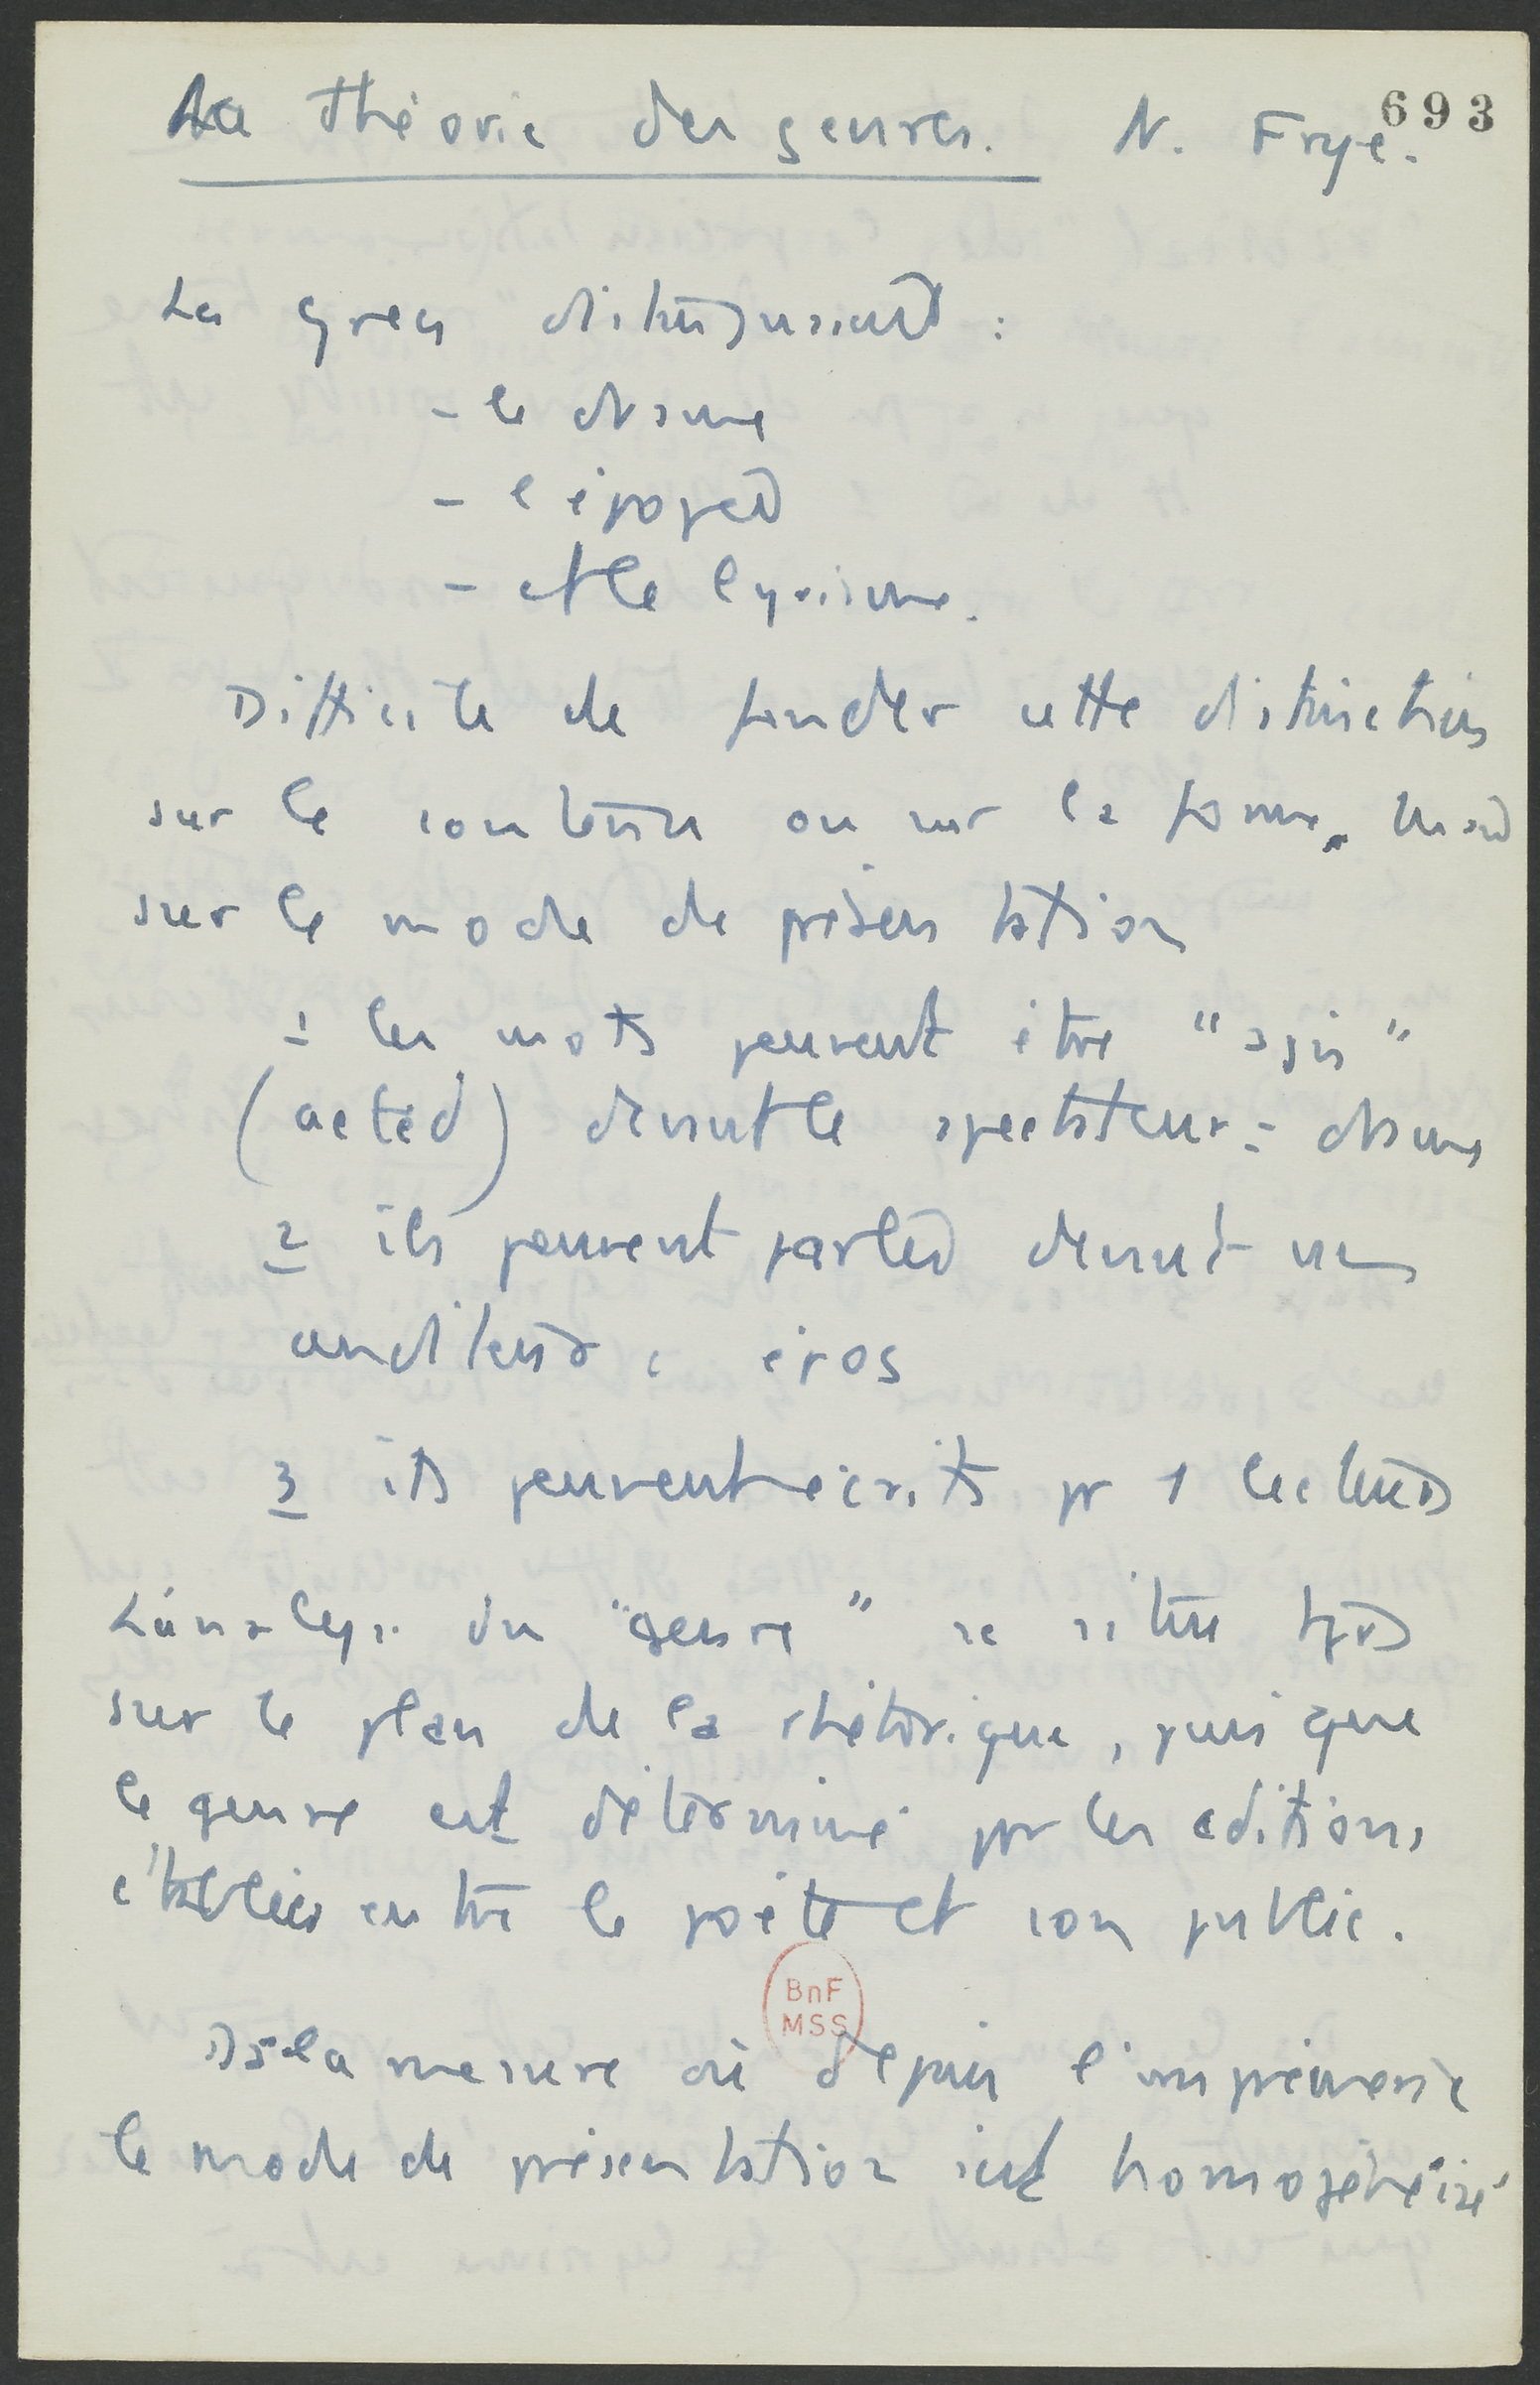 La théorie des genres. N. Frye.
693
Les Grecs distinguaient :
- le drame
- l'épopée
- et le lyrisme.
Difficile de fonder cette distinction
sur le contenu ou sur la forme. Mais
sur le mode de présentation
1 les mots peuvent être "agis"
(acted) devant le spectateur : drame
2 ils peuvent parler devant un
auditeur : epos
3 ils peuvent écrits pr 1 lecteur
L'analyse du "genre" se situe
sur le plan de la rhétorique, puisque
le genre est déterminé par les cditions
établies entre le poète et son public.
BnF
MSS
Ds la mesure où depuis l'imprimerie
le mode de présentation s'est homogénéisé